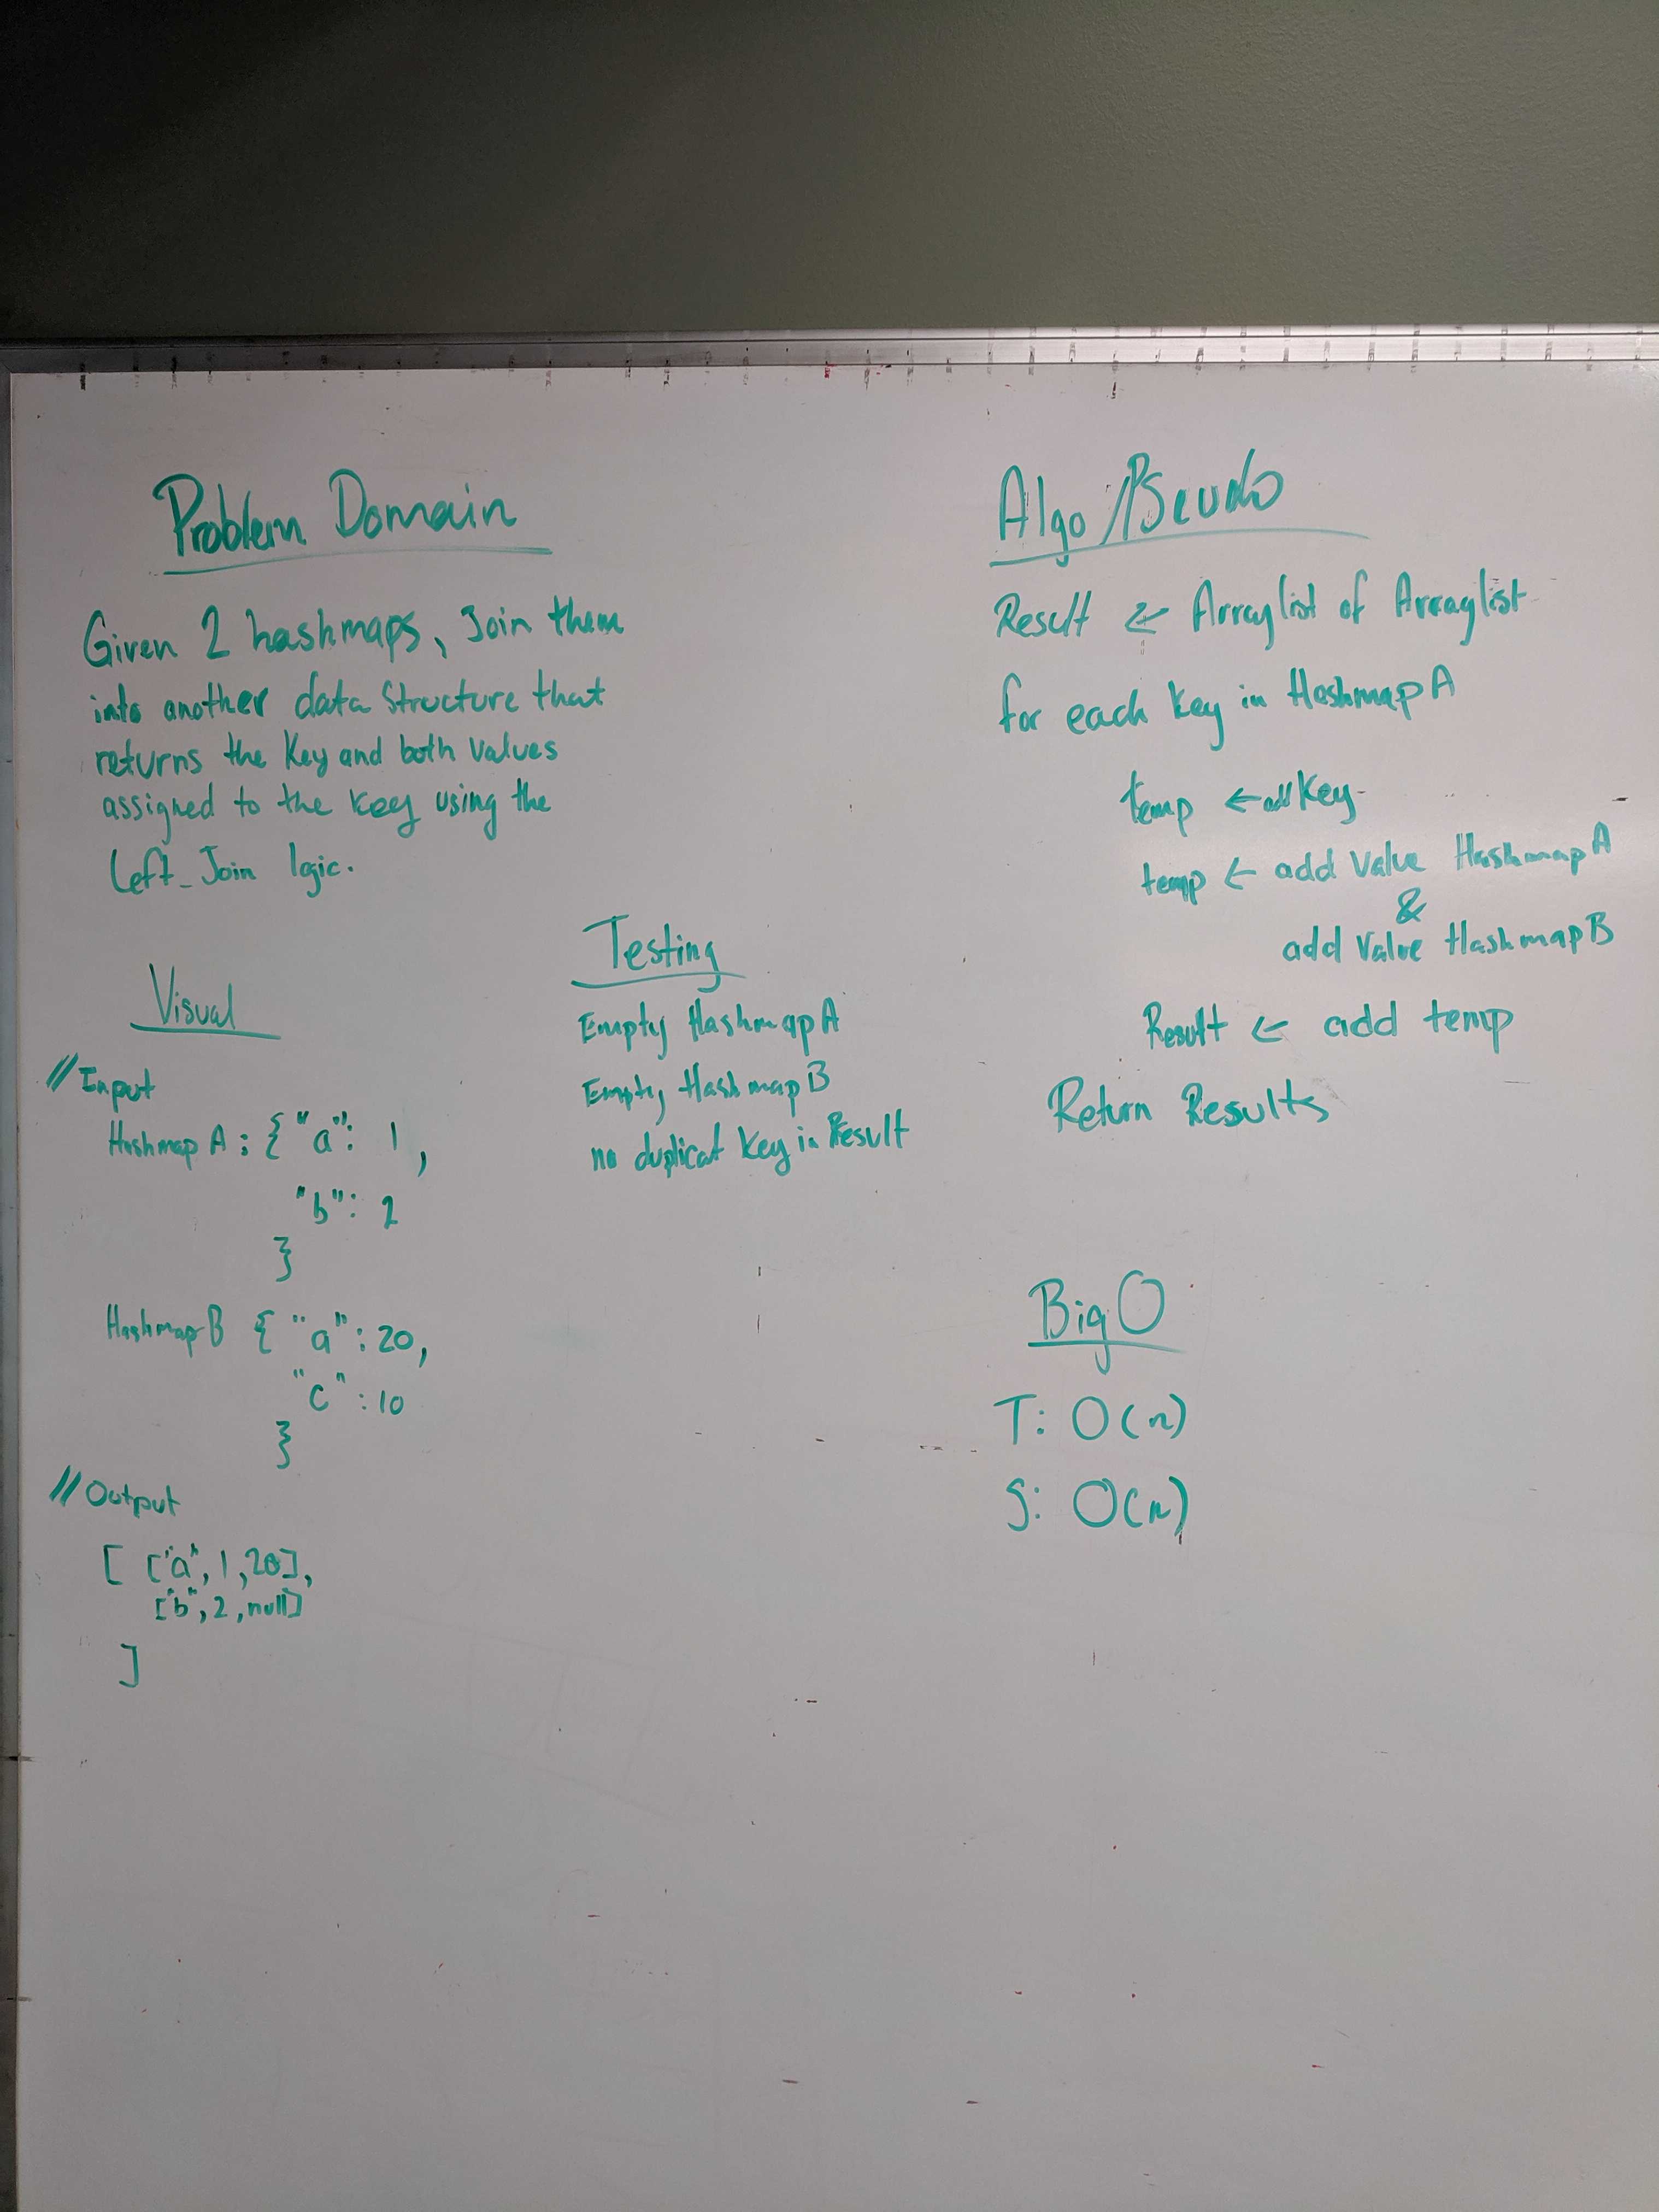 Problem Domain
Given 2 hashmaps, Join them
into another data Structure that
returns the Key and both values
assigned to the Key using the
Left_Join logic.
Visual
// Input
Hashmap A : { "a": 1,
"b": 2
}
Hashmap B { "a": 20,
"c": 10
}
// Output
[ ["a", 1, 20],
["b", 2, null]
]
Testing
Empty Hashmap A
Empty Hashmap B
no duplicat Key in Result
Algo / Pseudo
Result ← Arraylist of Arraylist
for each Key in Hashmap A
temp ← add Key
temp ← add Value Hashmap A
&
add Value Hashmap B
Result ← add temp
Return Results
Big O
T: O(n)
S: O(n)